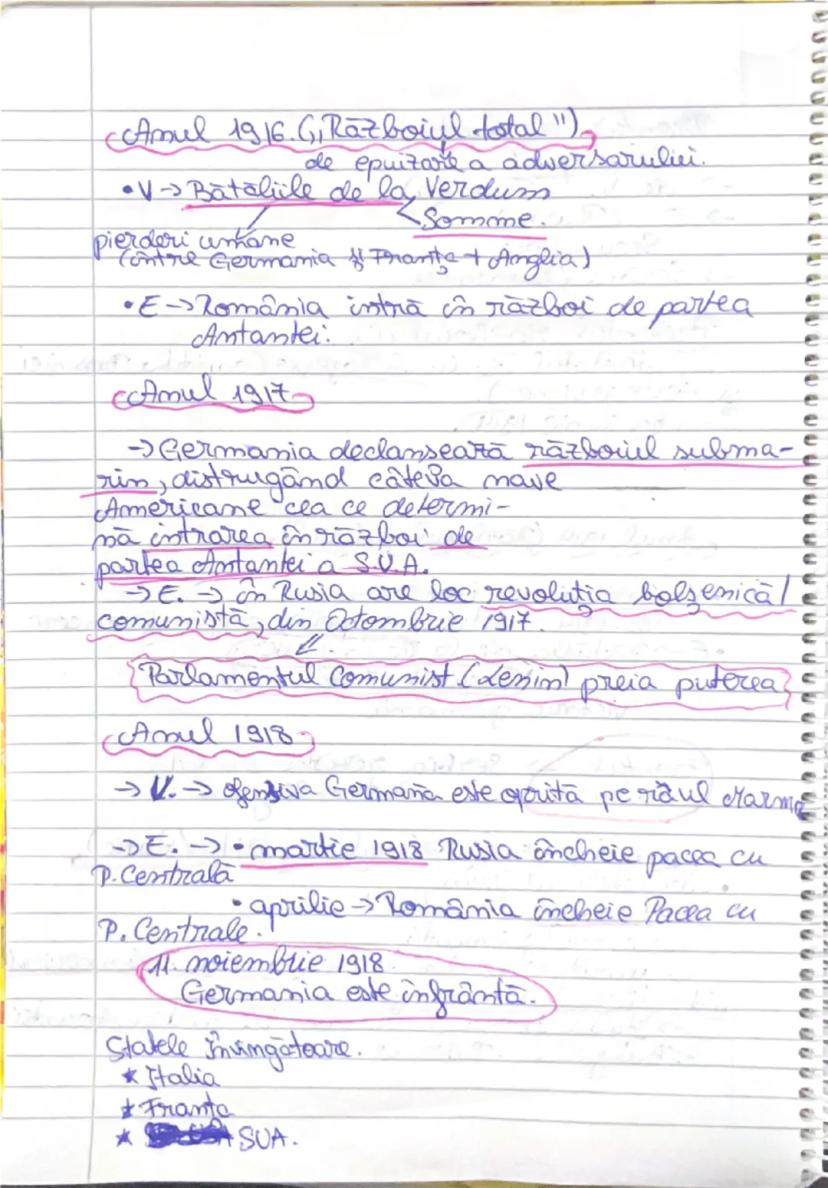 Anul 1916. („Războiul total")
de epuizare a adversarului.
• V → Bătăliile de la Verdum
Somme.
pierderi umane
(între Germania și Franța + Anglia)
• E → România intră în război de partea
Antantei.
Anul 1917
→ Germania declansează războiul subma-
rin, distrugând câteva nave
Americane cea ce determi-
nă intrarea în război de
partea Antantei a S.U.A.
→ E. → în Rusia are loc revoluția bolșenică/
comunistă, din Octombrie 1917.
Parlamentul Comunist (Lenin) preia puterea
Anul 1918
→ V. → ofensiva Germană este oprită pe râul Marna
→ E. → • martie 1918 Rusia încheie pacea cu
P. Centrală
• aprilie → România încheie Pacea cu
P. Centrale.
11. noiembrie 1918
Germania este înfrântă.
Statele Învingătoare.
* Italia
* Franța
* SUA.